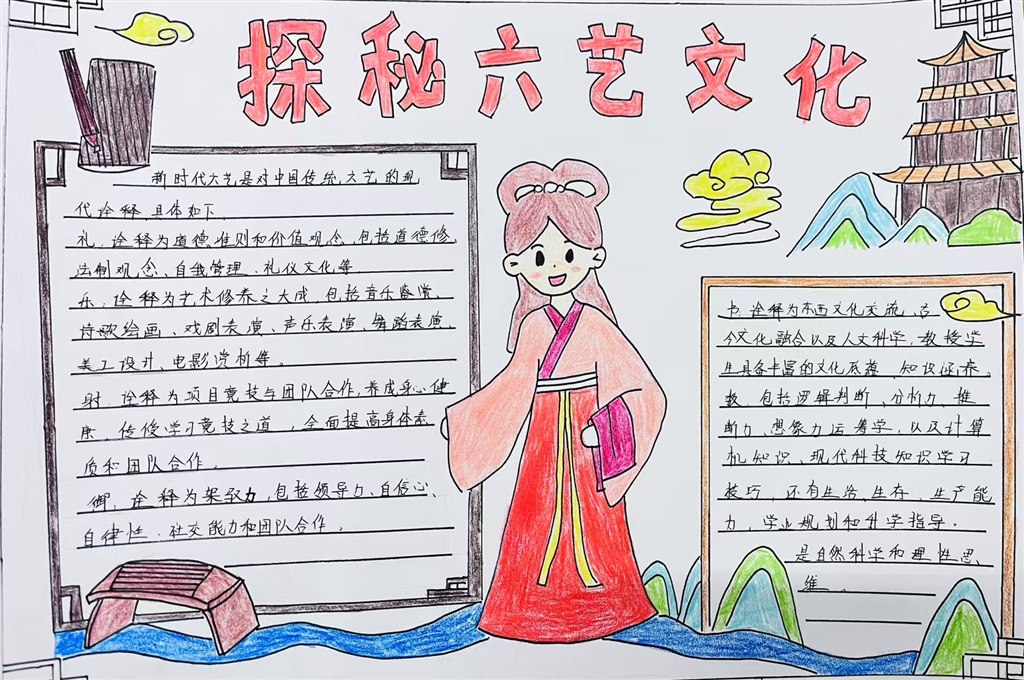 探秘六艺文化
新时代六艺是对中国传统六艺的现
代诠释具体如下
礼：诠释为道德准则和价值观念，包括道德修
法制观念、自我管理、礼仪文化等
乐：诠释为艺术修养之大成，包括音乐鉴赏、
诗歌绘画、戏剧表演、声乐表演、舞蹈表演、
美工设计、电影赏析等。
射：诠释为项目竞技与团队合作，养成身心健
康，传授学习竞技之道，全面提高身体素
质和团队合作。
御：诠释为驾驭力，包括领导力、自信心、
自律性、社交能力和团队合作。
书：诠释为东西文化交流，古
今文化融合以及人文科学，教授学
生具备丰富的文化底蕴、知识涵养、
数：包括逻辑判断、分析力、推
断力、想象力运筹学，以及计算
机知识、现代科技知识学习
技巧，还有生活、生存、生产能
力，学业规划和升学指导。
是自然科学和理性思
维。